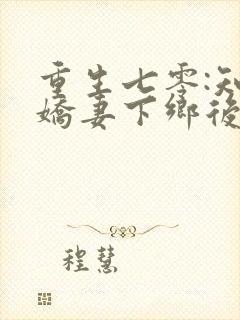 重生七零:知
嬌妻下鄉後
程慧